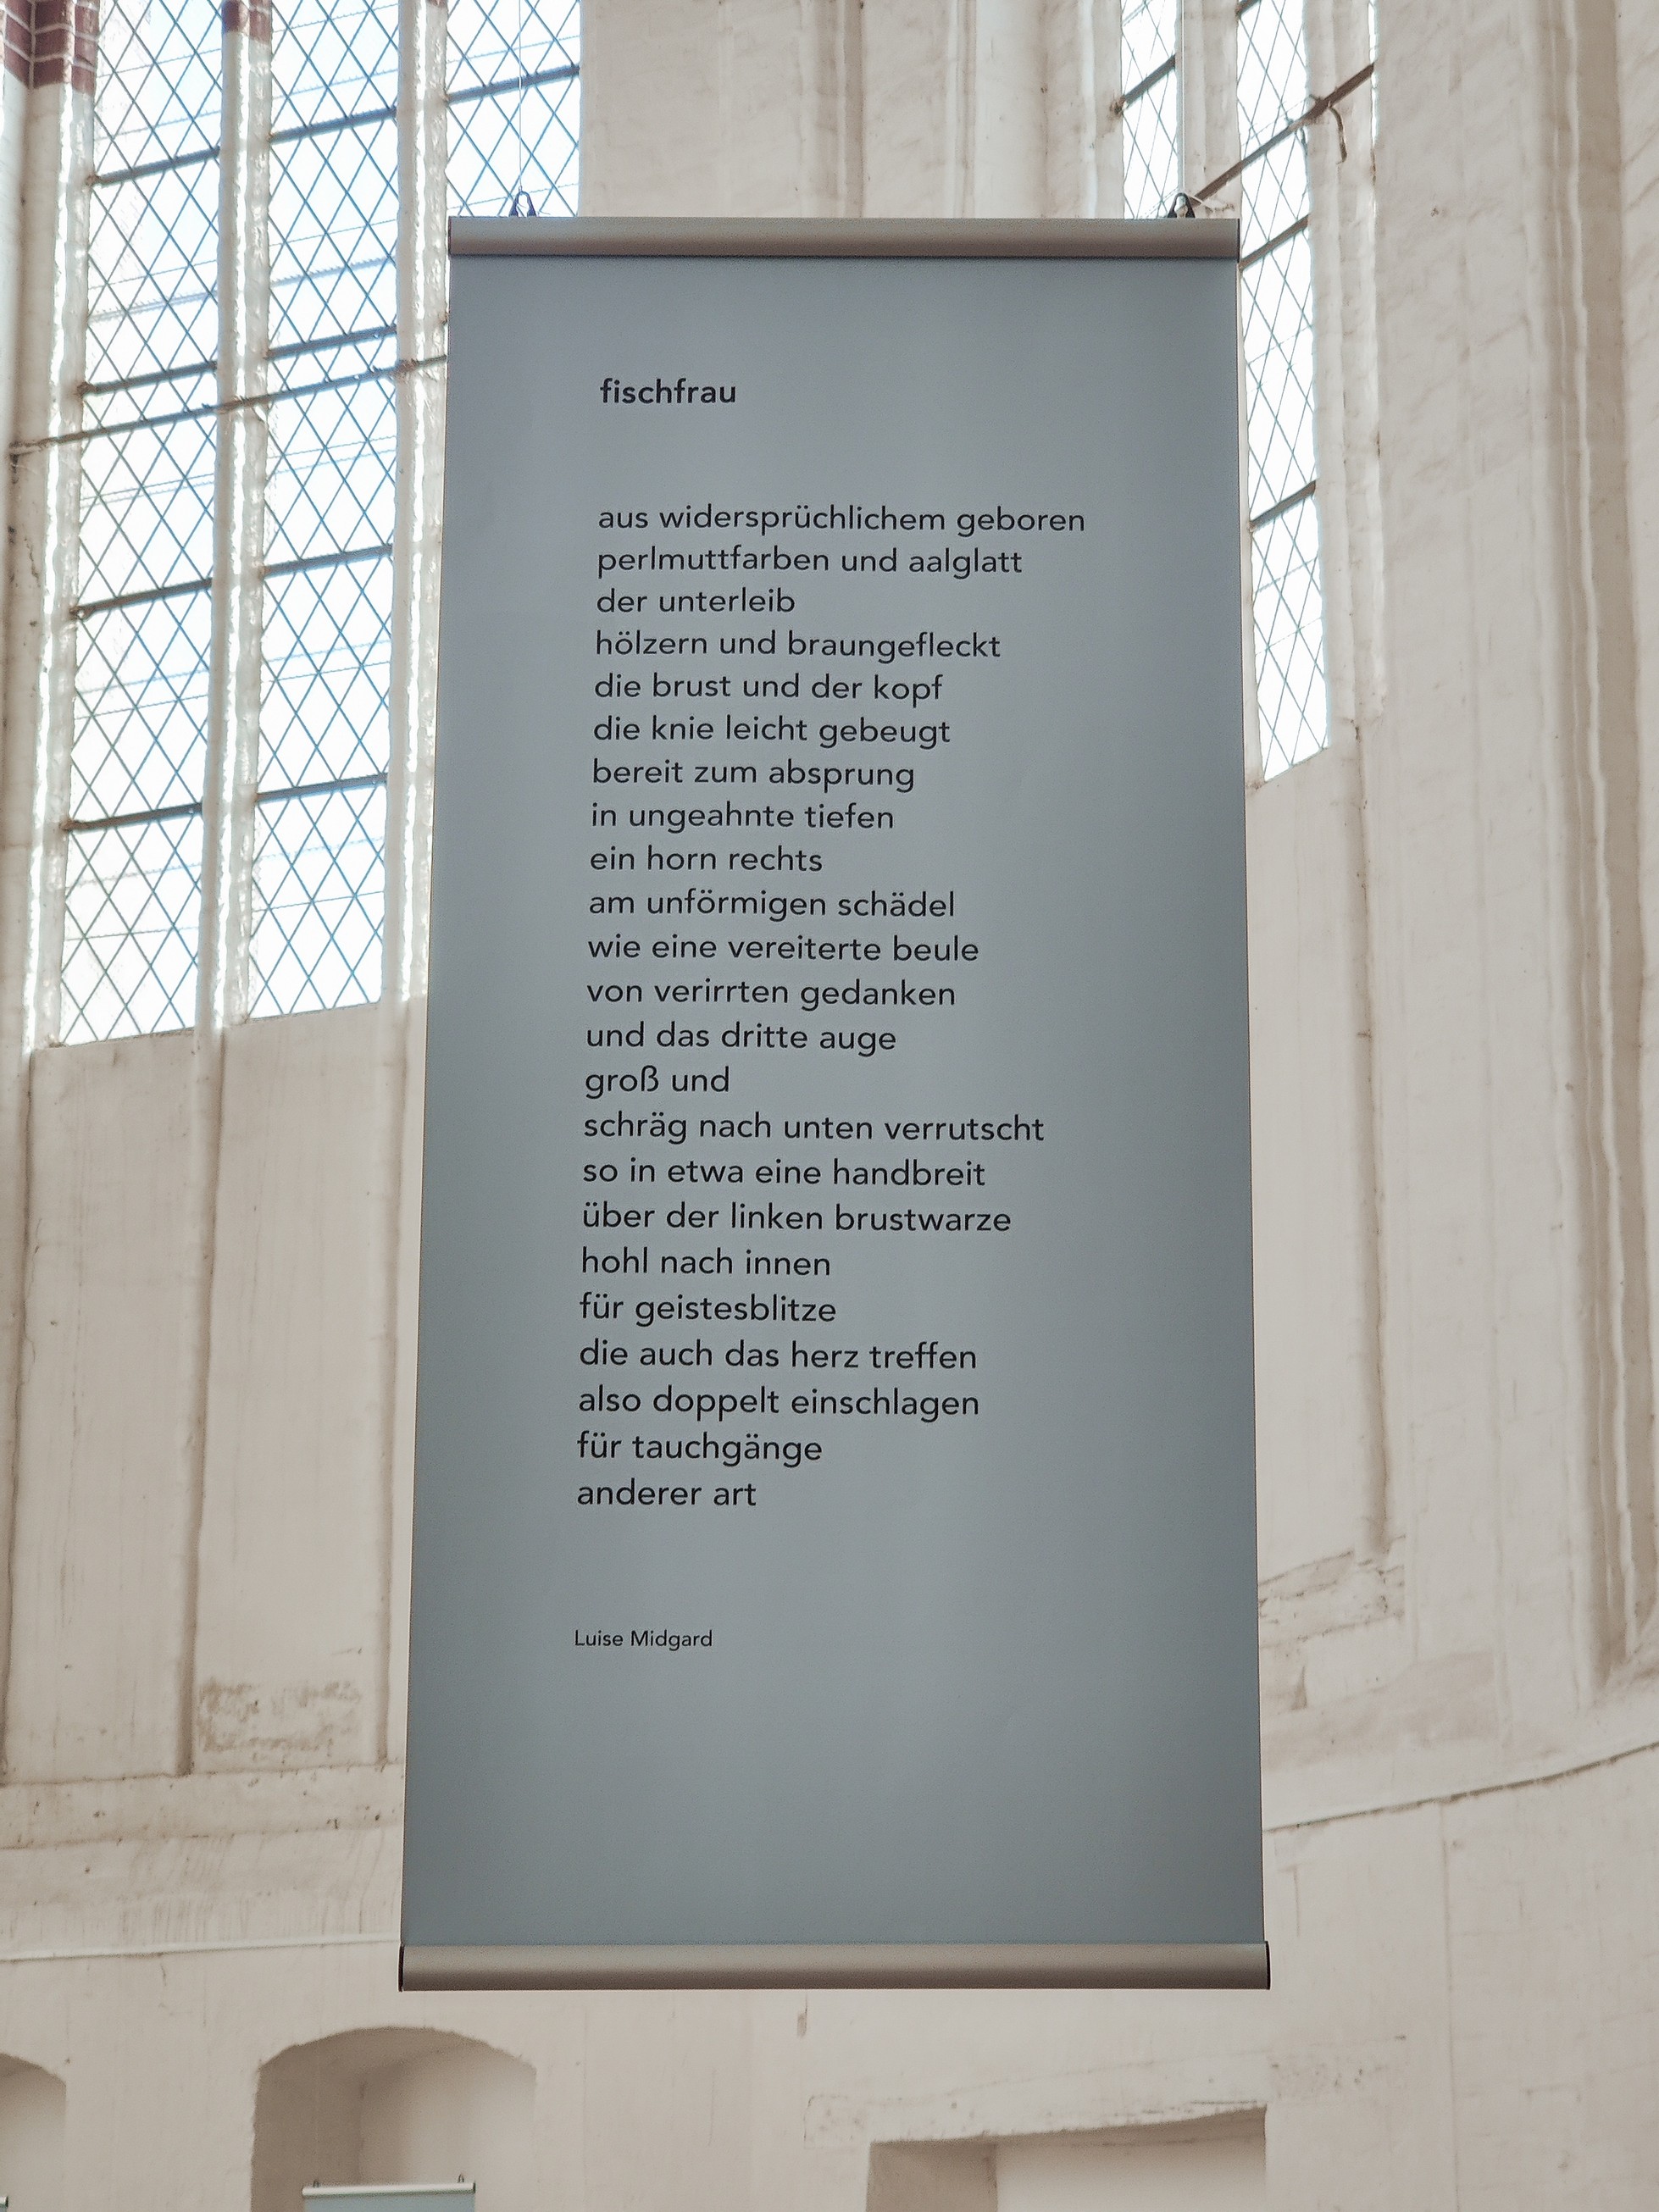 fischfrau
aus widersprüchlichem geboren
perlmuttfarben und aalglatt
der unterleib
hölzern und braungefleckt
die brust und der kopf
die knie leicht gebeugt
bereit zum absprung
in ungeahnte tiefen
ein horn rechts
am unförmigen schädel
wie eine vereiterte beule
von verirrten gedanken
und das dritte auge
groß und
schräg nach unten verrutscht
so in etwa eine handbreit
über der linken brustwarze
hohl nach innen
für geistesblitze
die auch das herz treffen
also doppelt einschlagen
für tauchgänge
anderer art
Luise Midgard